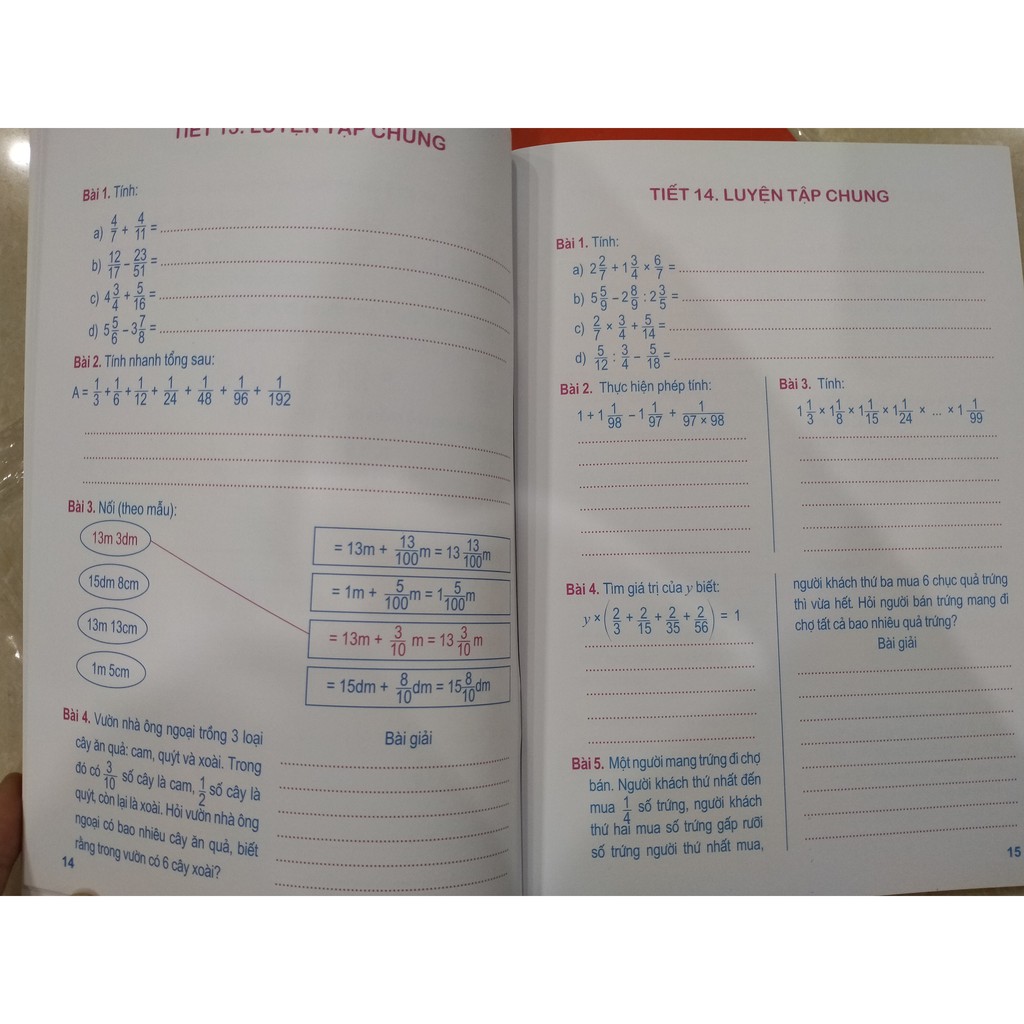 TIẾT 13. LUYỆN TẬP CHUNG
Bài 1. Tính:
a) 4/7 + 4/11 = ........
b) 12/17 – 23/51 = ........
c) 4 3/4 + 5/16 = ........
d) 5 5/6 – 3 7/8 = ........
Bài 2. Tính nhanh tổng sau:
A = 1/3 + 1/6 + 1/12 + 1/24 + 1/48 + 1/96 + 1/192
Bài 3. Nối (theo mẫu):
13m 3dm
15dm 8cm
13m 13cm
1m 5cm
= 13m + 13/100 m = 13 13/100 m
= 1m + 5/100 m = 1 5/100 m
= 13m + 3/10 m = 13 3/10 m
= 15dm + 8/10 dm = 15 8/10 dm
Bài 4. Vườn nhà ông ngoại trồng 3 loại
cây ăn quả: cam, quýt và xoài. Trong
đó có 3/10 số cây là cam, 1/2 số cây là
quýt, còn lại là xoài. Hỏi vườn nhà ông
ngoại có bao nhiêu cây ăn quả, biết
rằng trong vườn có 6 cây xoài?
Bài giải
14
TIẾT 14. LUYỆN TẬP CHUNG
Bài 1. Tính:
a) 2 2/7 + 1 3/4 × 6/7 = ........
b) 5 5/9 – 2 8/9 : 2 3/5 = ........
c) 2/7 × 3/4 + 5/14 = ........
d) 5/12 : 3/4 – 5/18 = ........
Bài 2. Thực hiện phép tính:
1 + 1 1/98 – 1 1/97 + 1/97 × 98
Bài 3. Tính:
1 1/3 × 1 1/8 × 1 1/15 × 1 1/24 × ... × 1 1/99
Bài 4. Tìm giá trị của y biết:
y × (2/3 + 2/15 + 2/35 + 2/56) = 1
Bài 5. Một người mang trứng đi chợ
bán. Người khách thứ nhất đến
mua 1/4 số trứng, người khách
thứ hai mua số trứng gấp rưỡi
số trứng người thứ nhất mua,
người khách thứ ba mua 6 chục quả trứng
thì vừa hết. Hỏi người bán trứng mang đi
chợ tất cả bao nhiêu quả trứng?
Bài giải
15